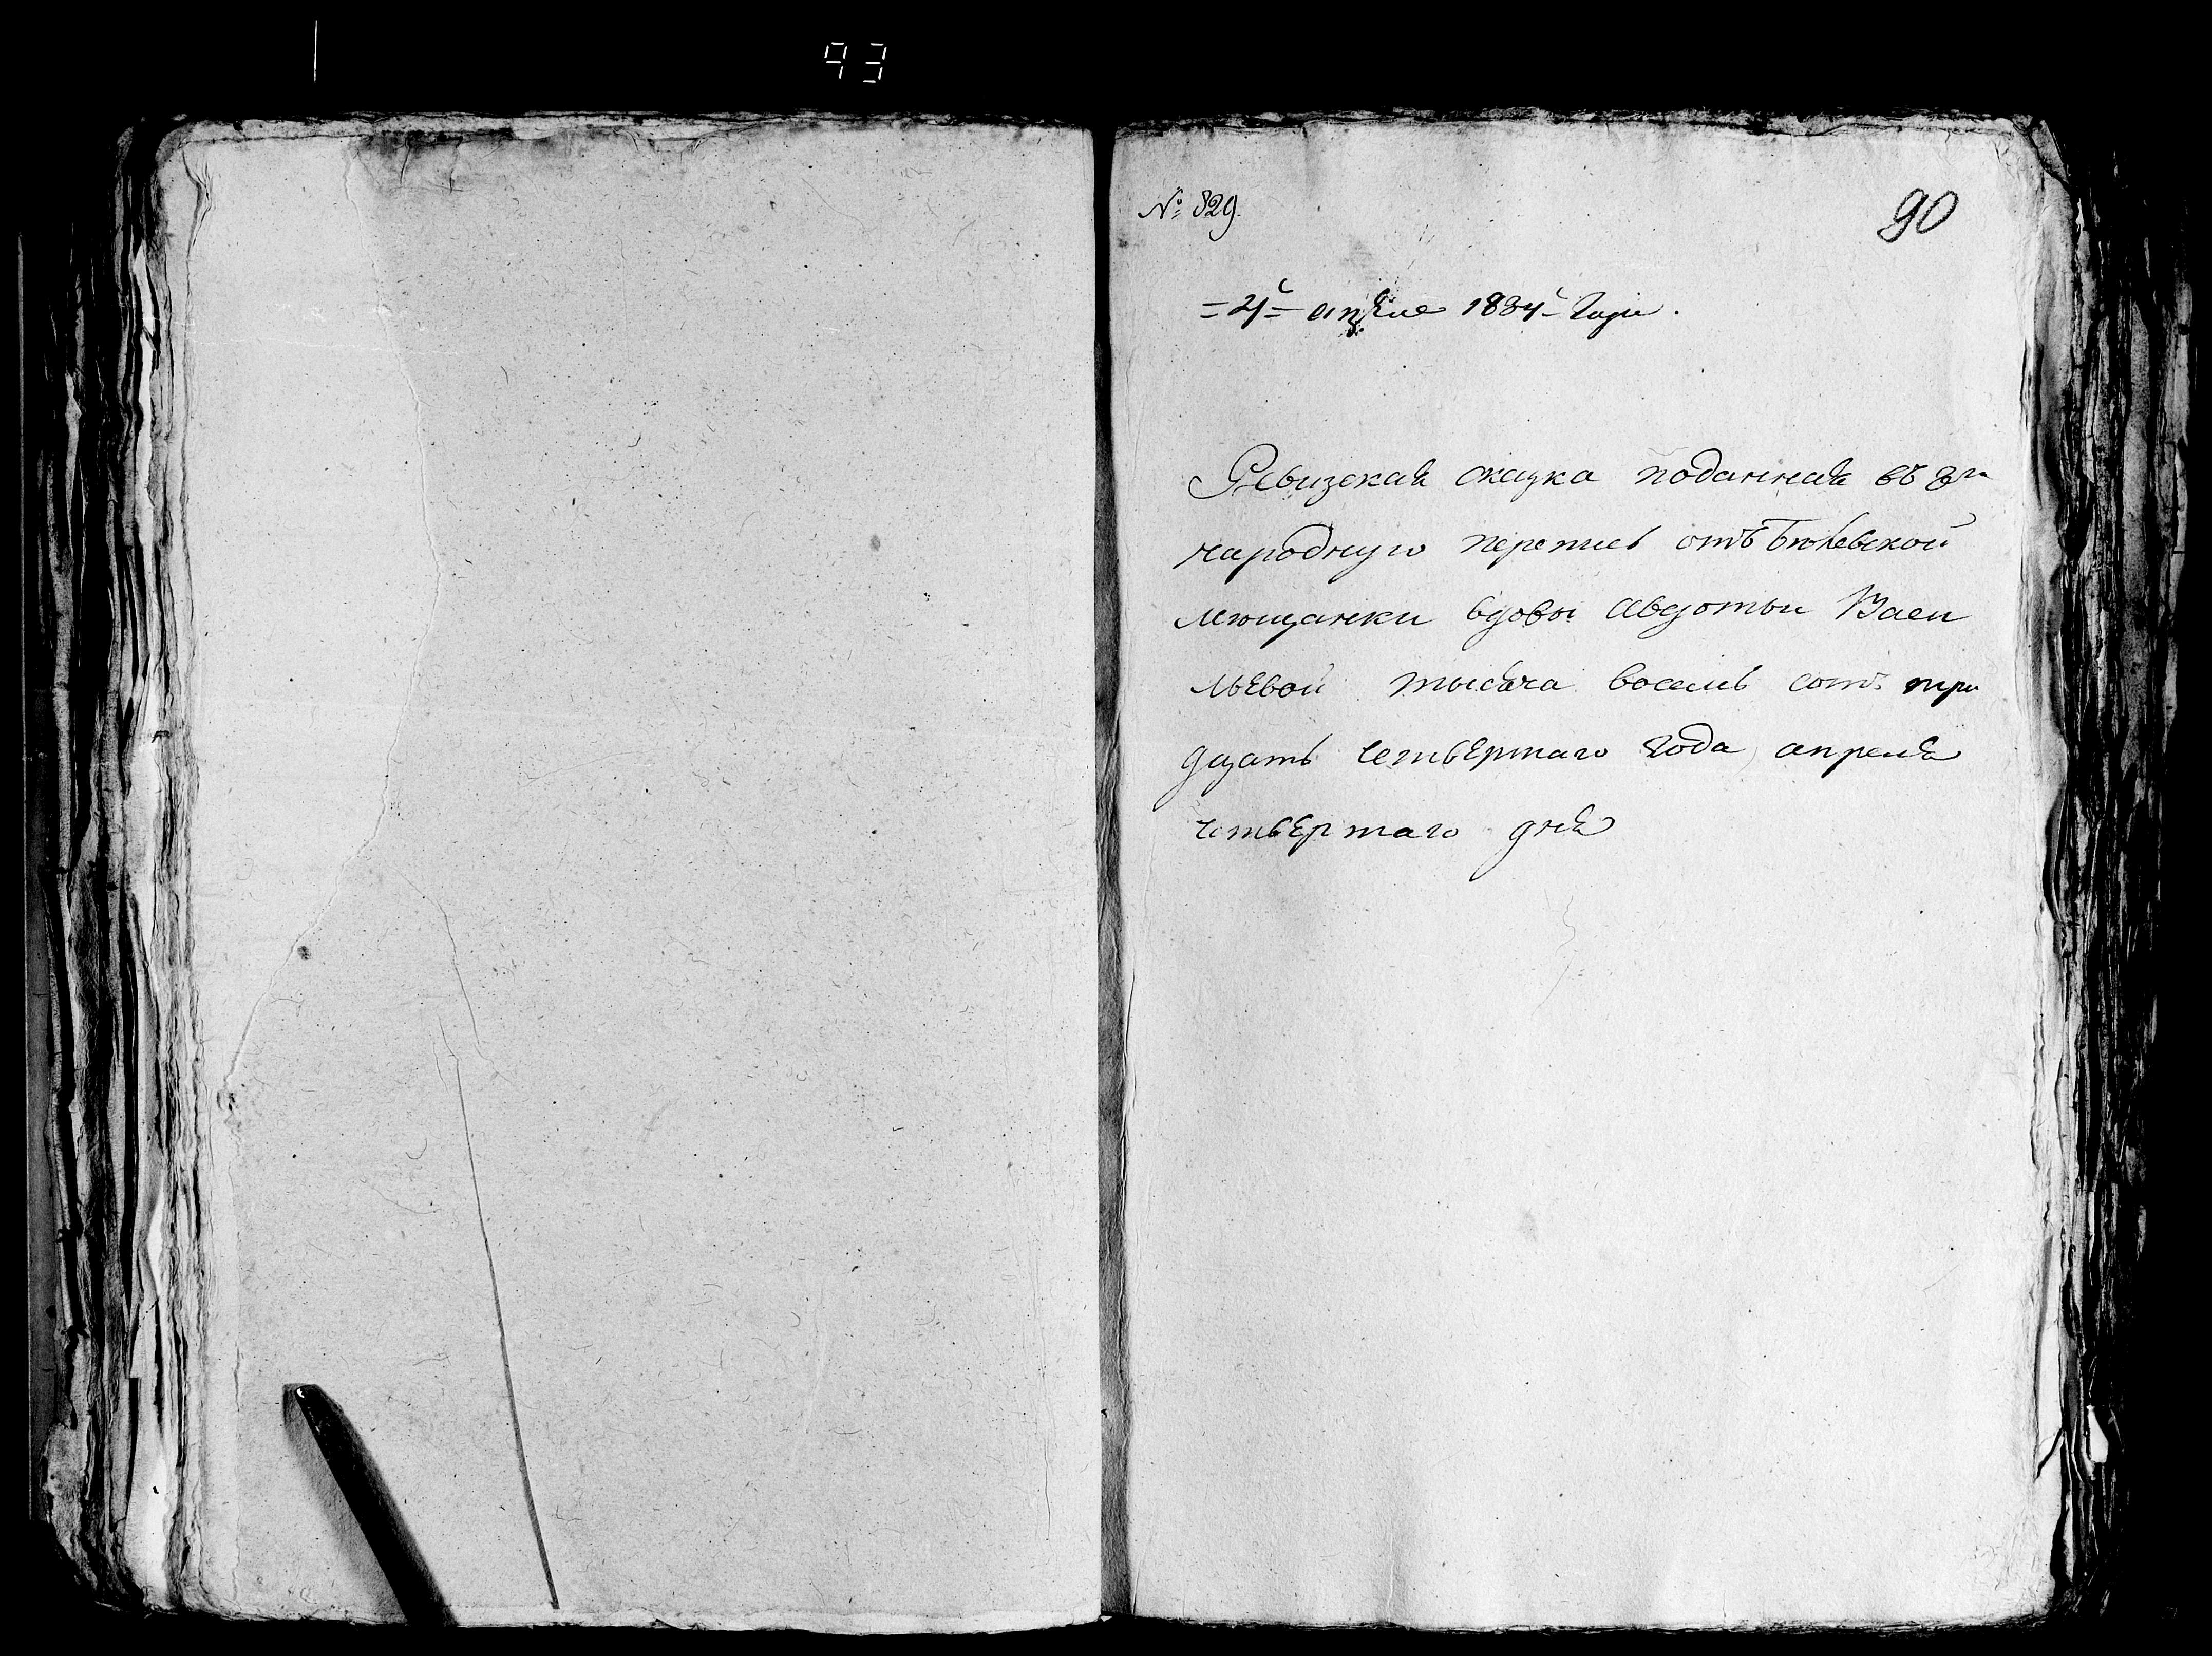 93
№ 829.
90
= 4 = апреля 1834 - года.
Ревизская сказка поданная въ 8ю
народную перепись отъ Бѣлевской
мещанки вдовы Авдотьи Васи
льевой тысяча восемь сотъ три
дцать четвертаго года апреля
четвертаго дня